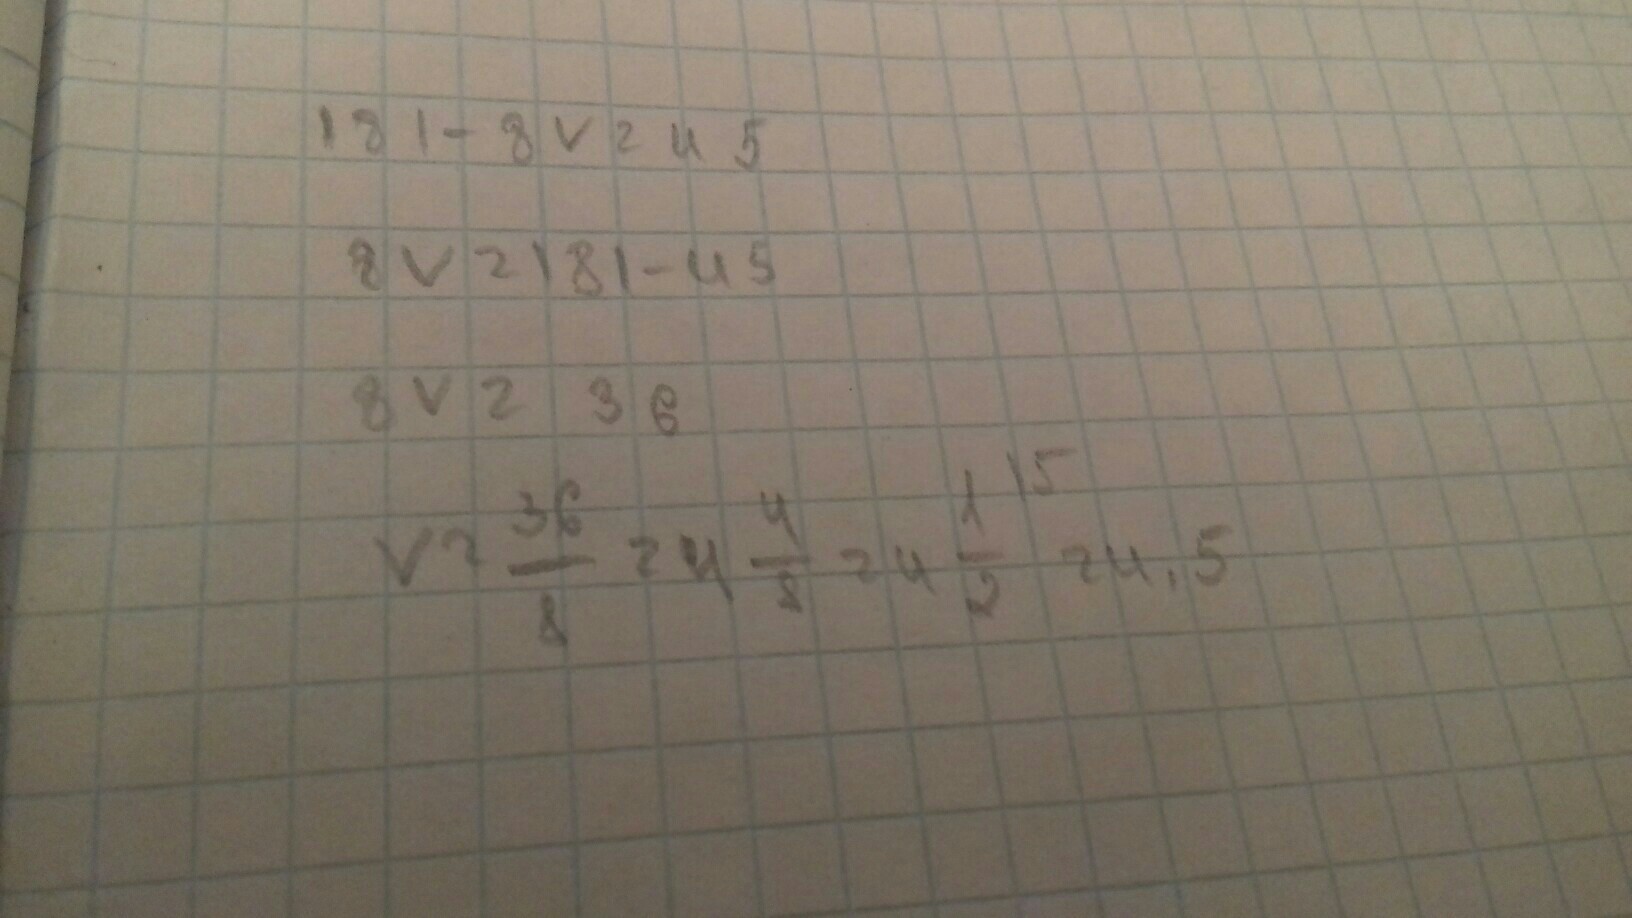 181-8V=45
8V=181-45
8V= 36
V=36/8=4 4/8=4 1/2 |5 =4.5